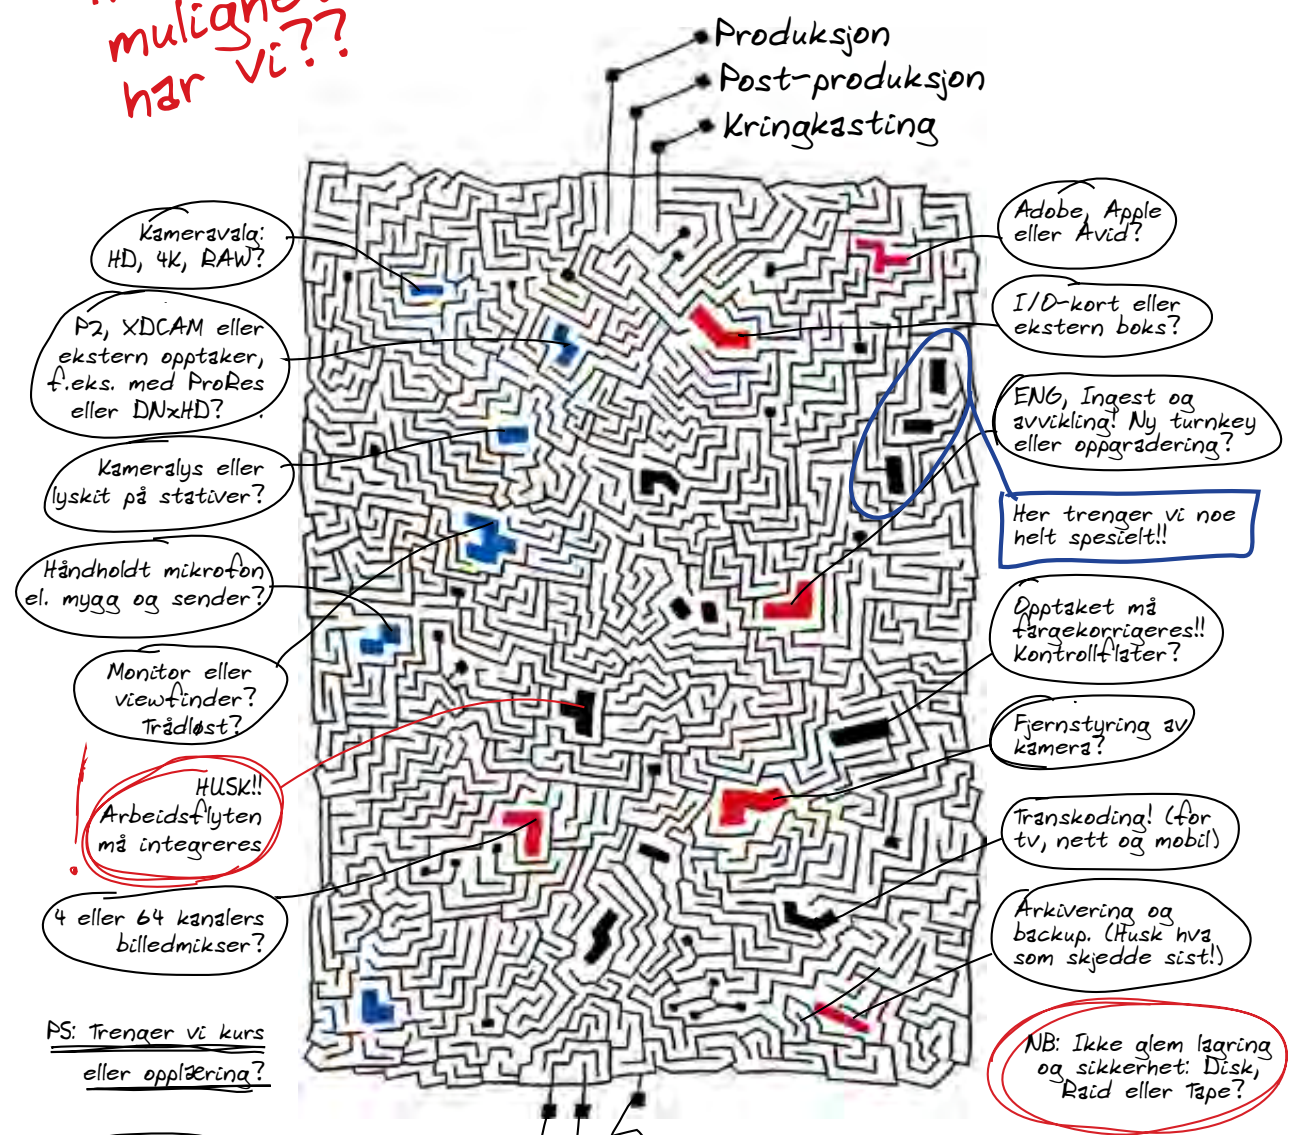 mulighe
har vi??
Produksjon
Post-produksjon
Kringkasting
Kameravalg:
HD, 4K, RAW?
P2, XDCAM eller
ekstern opptaker,
f.eks. med ProRes
eller DNxHD?
Kameralys eller
lyskit på stativer?
Håndholdt mikrofon
el. mygg og sender?
Monitor eller
viewfinder?
Trådløst?
HUSK!!
Arbeidsflyten
må integreres
!
4 eller 64 kanalers
billedmikser?
PS: Trenger vi kurs
eller opplæring?
Adobe, Apple
eller Avid?
I/O-kort eller
ekstern boks?
ENG, Ingest og
avvikling! Ny turnkey
eller oppgradering?
Her trenger vi noe
helt spesielt!!
Opptaket må
fargekorrigeres!!
Kontrollflater?
Fjernstyring av
kamera?
Transkoding! (for
tv, nett og mobil)
Arkivering og
backup. (Husk hva
som skjedde sist!)
NB: Ikke glem lagring
og sikkerhet: Disk,
Raid eller Tape?